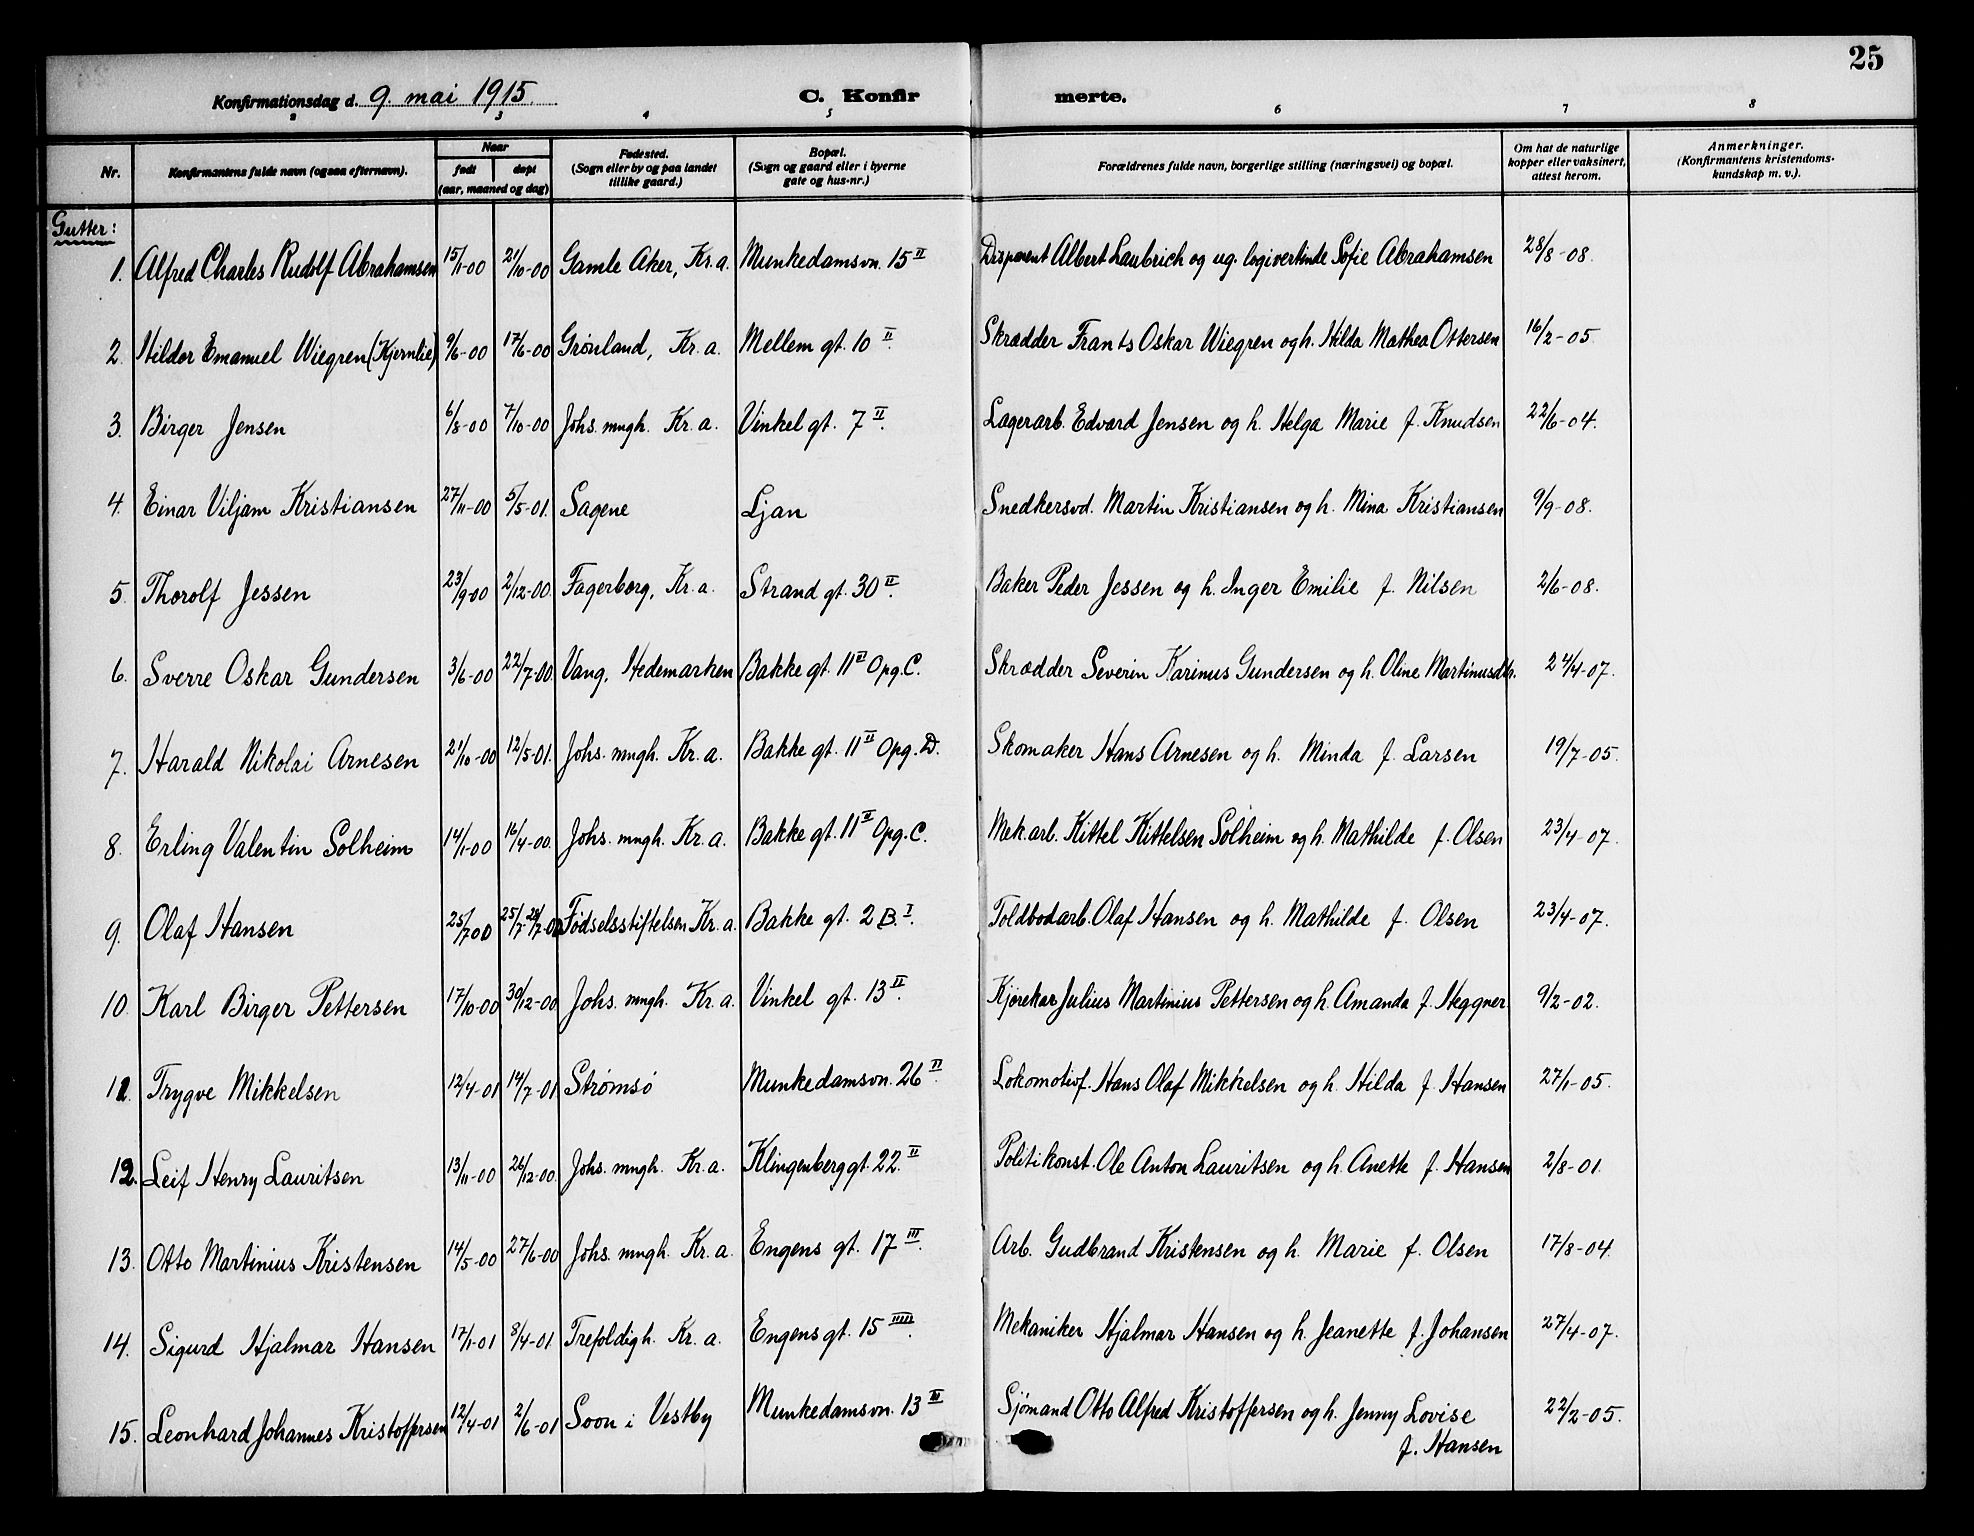 25
Konfirmationsdag d. 9. mai 1915. C. Konfir merte.
2 3 4 5 6 7 8
Nr. Konfirmantens fulde navn (ogsaa efternavn). Naar født døpt (aar, maaned og dag) Fødested. (Sogn eller by og paa landet tillike gaard.) Bopæl. (Sogn og gaard eller i byerne gate og hus-nr.) Forældrenes fulde navn, borgerlige stilling (næringsvei) og bopæl. Om hat de naturlige kopper eller vaksinert, attest herom. Anmerkninger. (Konfirmantens kristendoms-kundskap m. v.).
Gutter:
1. Alfred Charles Rudolf Abrahamsen 15/11-00 21/10-00 Gamle Aker, Kr.a. Munkedamsvn. 15 II Disponent Albert Laubrich og ug. logivertinde Sofie Abrahamsen 28/8-08.
2. Hildor Emanuel Wiegren (Kjernlie) 9/6-00 17/6-00 Grønland, Kr.a. Mellem gt. 10 II. Skrædder Frants Oskar Wiegren og h. Hilda Mathea Ottersen 16/2-05.
3. Birger Jensen 6/8-00 7/10-00 Johs. mngh. Kr.a. Vinkel gt. 7 II. Lagerarb. Edvard Jensen og h. Helga Marie f. Knudsen 22/6-04.
4. Einar Viljam Kristiansen 27/11-00 5/5-01. Sagene Ljan Snedkersvd. Martin Kristiansen og h. Mina Kristiansen 9/9-08.
5. Thorolf Jessen 23/9-00 2/12-00. Fagerborg, Kr.a. Strand gt. 30 II. Baker Peder Jessen og h. Inger Emilie f. Nilsen 2/6-08.
6. Sverre Oskar Gundersen 3/6-00 22/7-00. Vang, Hedemarken Bakke gt. 11 II Opg. C. Skrædder Severin Karinus Gundersen og h. Oline Martinusdtr. 24/4-07.
7. Harald Nikolai Arnesen 21/10-00 12/5-01. Johs. mngh. Kr.a. Bakke gt. 11 II Opg. D. Skomaker Hans Arnesen og h. Minda f. Larsen 19/7-05.
8. Erling Valentin Solheim 14/1-00 16/4-00. Johs. mngh. Kr.a. Bakke gt. 11 II Opg. C. Mek.arb. Kittel Kittelsen Solheim og h. Mathilde f. Olsen 23/4-07.
9. Olaf Hansen 25/7 00 25/7-29/7-00 Fødselsstiftelsen Kr.a. Bakke gt. 2 B. I. Toldbodarb. Olaf Hansen og h. Mathilde f. Olsen 23/4-07.
10. Karl Birger Pettersen 17/10-00 30/12-00. Johs. mngh. Kr.a. Vinkel gt. 13 II. Kjørekar Julius Martinius Pettersen og h. Amanda f. Heggner 9/2-02.
11. Trygve Mikkelsen 12/4-01 14/7-01 Strømsø Munkedamsvn. 26 II. Lokomotivf. Hans Olaf Mikkelsen og h. Hilda f. Hansen 27/1-05.
12. Leif Henry Lauritsen 13/11-00 26/12-00. Johs. mngh. Kr.a. Klingenberggt. 22. II Politikonst. Ole Anton Lauritsen og h. Anette f. Hansen 2/8-01.
13. Otto Martinius Kristensen 14/5-00 27/6-00 Johs. mngh. Kr.a. Engens gt. 17 III. Arb. Gudbrand Kristensen og h. Marie f. Olsen 17/8-04.
14. Sigurd Hjalmar Hansen 17/1-01 8/4-01. Trefoldigh. Kr.a. Engens gt. 15 IIII. Mekaniker Hjalmar Hansen og h. Jeanette f. Johansen 27/4-07.
15. Leonhard Johannes Kristoffersen 12/4-01 2/6-01 Soon i Vestby Munkedamsvn. 13 III Sjømand Otto Alfred Kristoffersen og h. Jenny Lovise 22/2-05.
f. Hansen